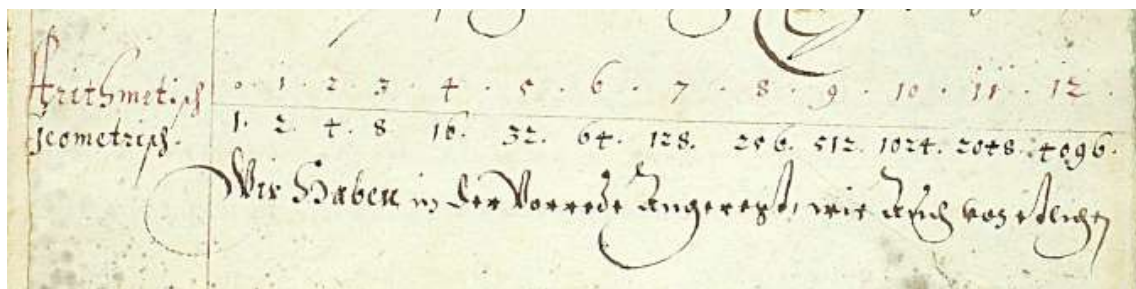 Arithmetisch 0 · 1 · 2 · 3 · 4 · 5 · 6 · 7 · 8 · 9 · 10 · 11 · 12 ·
Geometrisch. 1. 2. 4. 8. 16. 32. 64. 128. 256. 512. 1024. 2048. 4096.
Wir Haben in der Vorrede Angeregt, wie Auch von etlichen